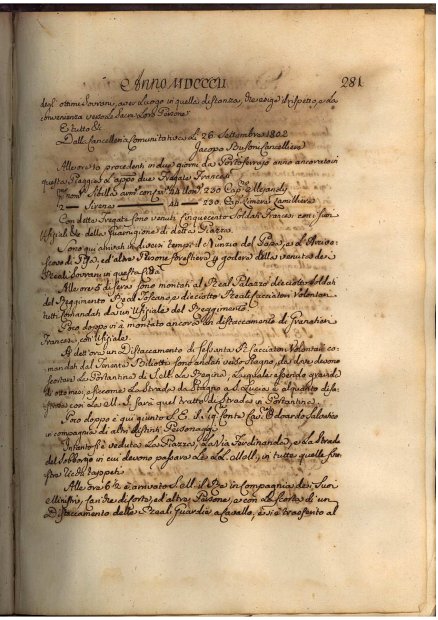 Anno MDCCCII 281
degl' ottimi Sovrani, aver luogo in quella distanza, che esige il rispetto, e la
convenienza verso le Sacre Loro Persone
E tutto &.
Dalla Cancelleria Comunitativa Li 26 Settembre 1802
Jacopo Cancelliere
Alle ore 10 precedenti in due giorni da Portoferrajo anno ancorato in
questa Piaggia d'appo due Fregate Francesi
Sibilla 44 230 Cap.
2 Sirena 44 230 Cap.
Con dette Fregate sono venuti cinquecento Soldati Francesi con i suoi
Ufiziali della Guarnigione di detta Piazza.
Sono qui arrivati in diversi tempi il Nunzio del Papa, e l' Arcive-
scovo di Pisa, ed altre Persone forestiere a godere della venuta dei
Reali Sovrani in questa Città.
Alle ore 6 di sera sono montati al Real Palazzo diciotto Soldati
del Reggimento Real Toscano, e diciotto Reali Cacciatori Volontari
tutti comandati da un Ufiziale del Reggimento.
Poco doppo vi à montato ancora un distaccamento di Granatieri
Francesi con Ufiziale.
A dett'ora un Distaccamento di Sessanta R. Cacciatori Volontari co-
mandati dal Tenente Bilietti sono andati verso Stagno, da dove devono
scortare la Portantina di S. M. la Regina, la quale essendo gravida
di otto mesi, siccome la Strada da Stagno a S. Lucia è alquanto disa-
strosa così la M. S. farà quel tratto di Strada in Portantina.
Poco doppo è qui giunto S. E. il Sig. Conte Cav. Odoardo Salvatico
in compagnia di altri distinti Personaggi.
Intanto si è veduta La Piazza, La Via Ferdinanda, e La Strada
del Sobborgo in cui devono passare Le LL. MM., in tutte quelle fine-
stre tappeti.
Alle ore 6 1/2 è arrivato S. M. il Re in Compagnia dei Suoi
Ministri, Cariche di Corte, ed altre Persone, e con la scorta di un
Distaccamento della Real Guardia a Cavallo, e si è trasferito al